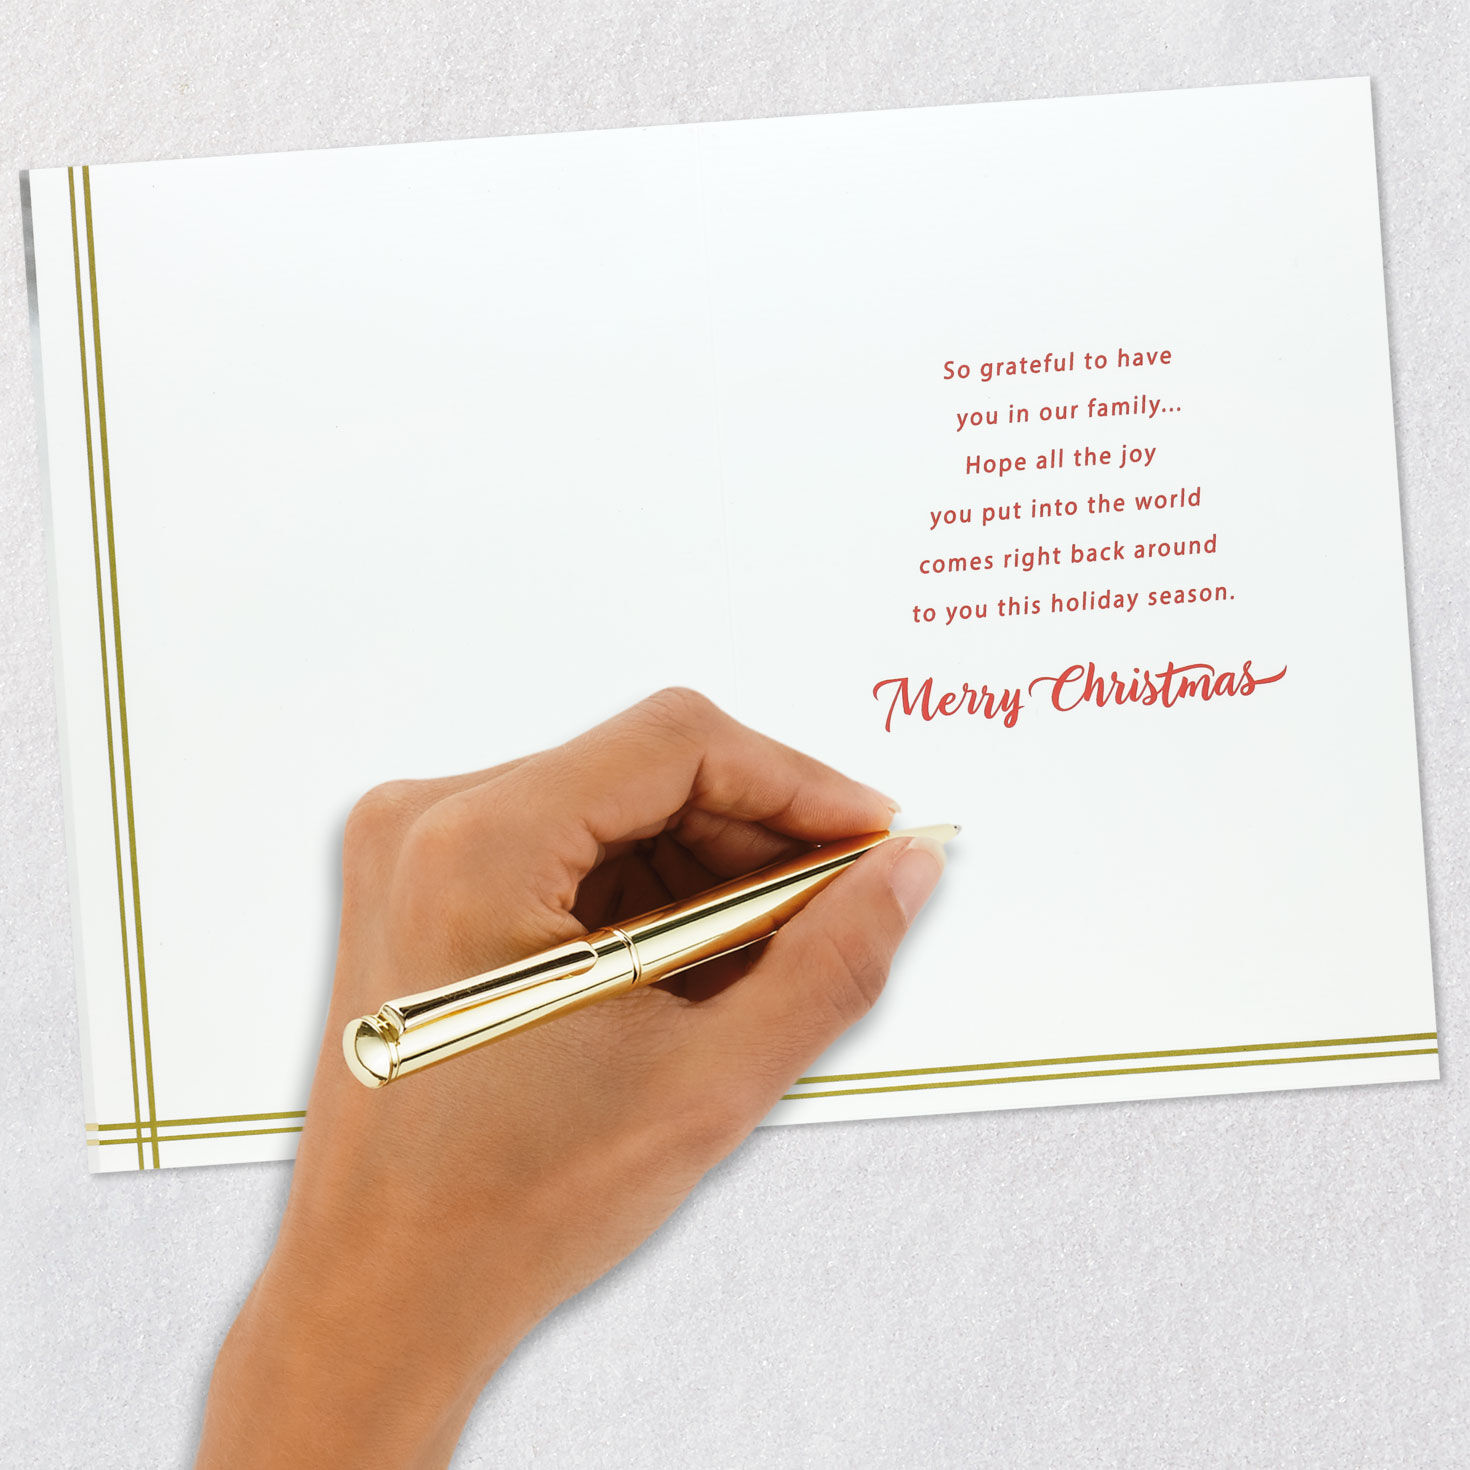 So grateful to have
you in our family...
Hope all the joy
you put into the world
comes right back around
to you this holiday season.
Merry Christmas